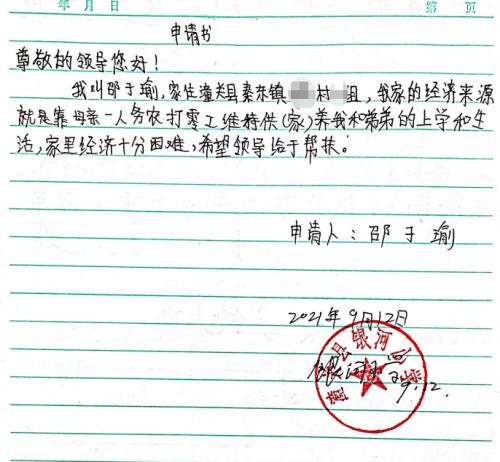 年 月 日 第 页
申请书
尊敬的领导您好!
我叫邵于瑜,家住潼关县秦东镇 村 组,我家的经济来源
就是靠母亲一人务农打零工维持供(家)养我和弟弟的上学和生
活,家里经济十分困难,希望领导给于帮扶。
申请人:邵于瑜
2021年9月12日
县银河
9.12.